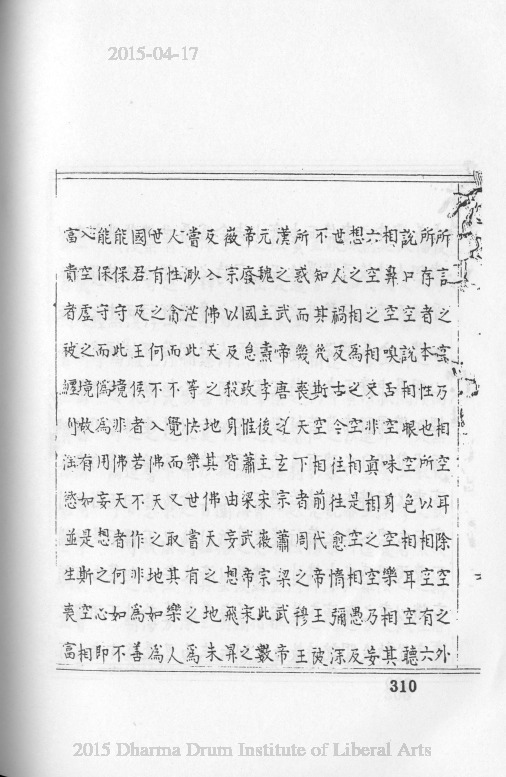 2015-04-17
所言之空乃相空耳除空之外
所存者本性也所以相空有六
說口空說相眼空色相耳空聽
相鼻空嗅舌空味身空樂相其
六空之相又非真相之空乃妄
想之相為之空相是空相愚及
世人禍及古今往往愈惰彌深
不知其幾斯空相前代帝王被
所惑而幾喪天下者周之穆王
漢之武帝唐之玄宗蕭梁武帝
元魏主燾李後主宋徽宗此數
帝廢國怠政惟蕭梁武帝宋之
徽宗以及殺身皆由妄想飛昇
及入佛天之地其佛天之地未
嘗渺茫此等快樂世嘗有之為
人性貪而不覺而又取其樂人
世有之何不入佛天之地如為
國君及王侯者若不作非為善
能保守此境非佛天者何如不
能保守而偽為用妄想之心即
空虛之境故有如是斯空相
富貴者被纏則淫慾並生喪富
310
2015 Dharma Drum Institute of Liberal Arts